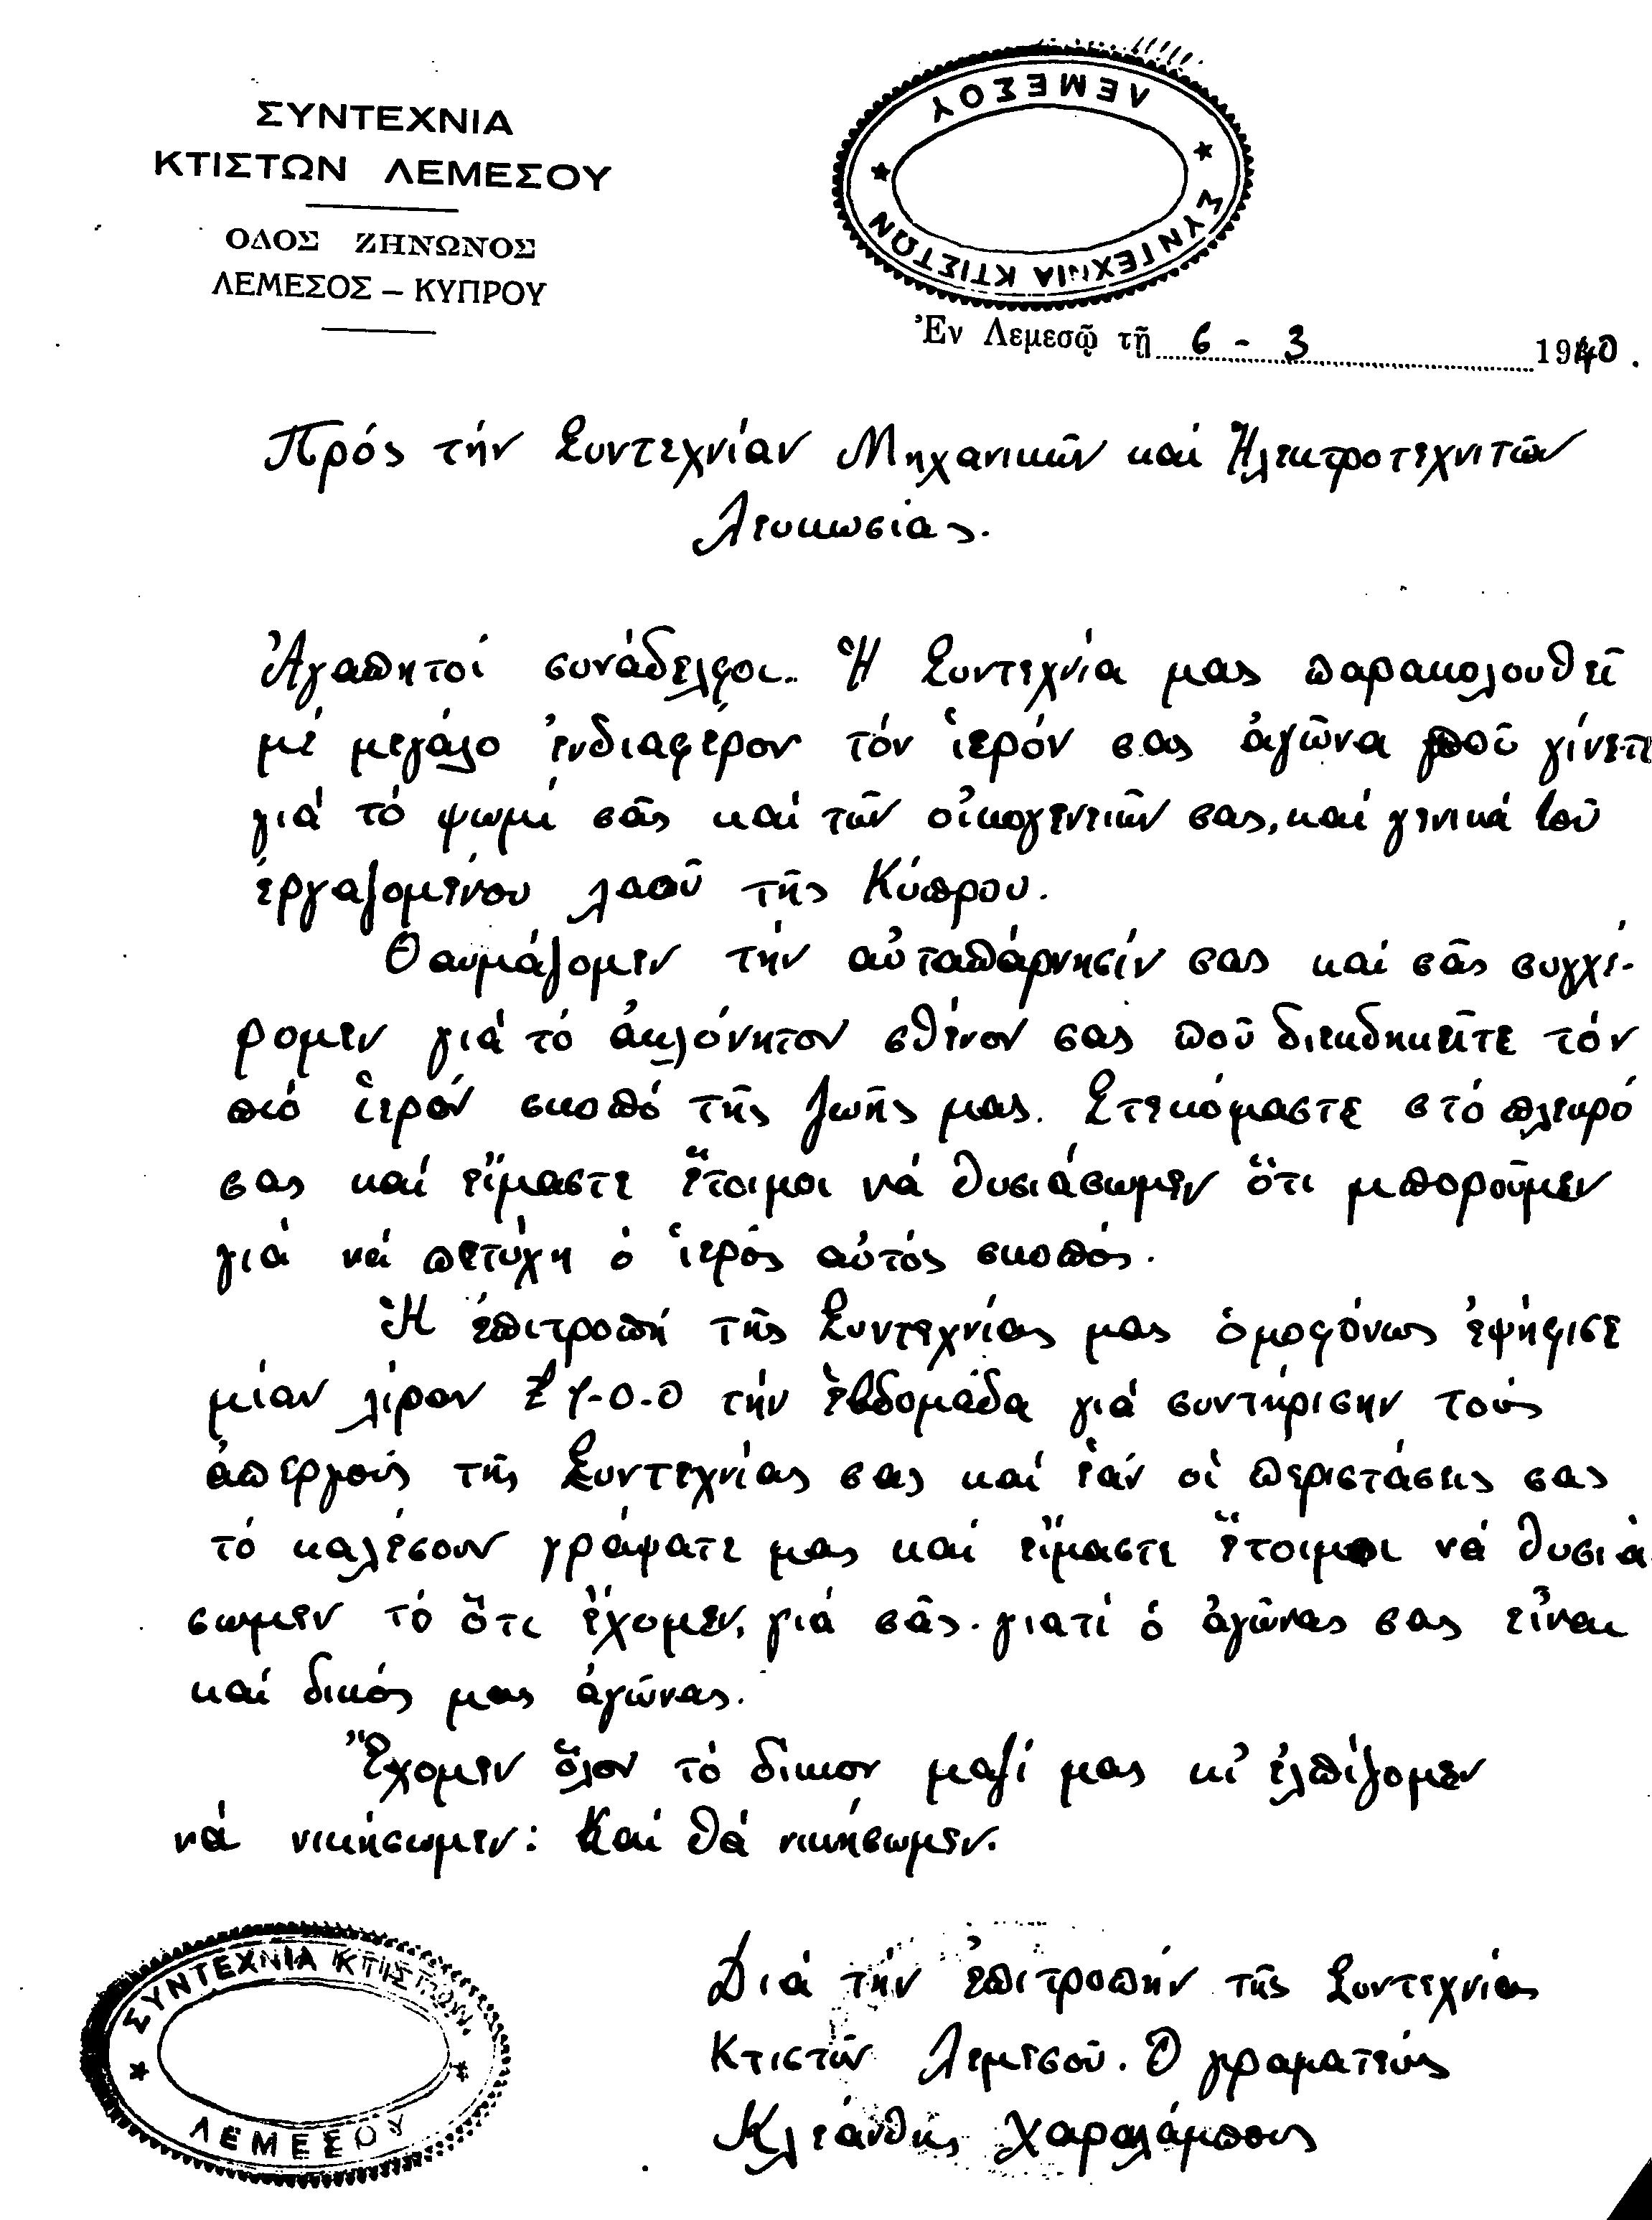 ΣΥΝΤΕΧΝΙΑ
ΚΤΙΣΤΩΝ ΛΕΜΕΣΟΥ
ΟΔΟΣ ΖΗΝΩΝΟΣ
ΛΕΜΕΣΟΣ – ΚΥΠΡΟΥ
ΣΥΝΤΕΧΝΙΑ ΚΤΙΣΤΩΝ
ΛΕΜΕΣΟΥ
Ἐν Λεμεσῷ τῇ 6 - 3 1940.
Πρός τήν Συντεχνίαν Μηχανικῶν καί Ἠλεκτροτεχνιτῶν
Λευκωσίας.
Ἀγαπητοί συνάδελφοι.. Ἡ Συντεχνία μας παρακολουθεῖ
μέ μεγάλο ἐνδιαφέρον τόν ἱερόν σας ἀγῶνα ποῦ γίνετε
γιά τό ψωμί σᾶς καί τῶν οἰκογενειῶν σας, καί γενικά τοῦ
ἐργαζομένου λαοῦ τῆς Κύπρου.
Θαυμάζομεν τήν αὐταπάρνησίν σας καί σᾶς συγχέ-
ρομεν γιά τό ἀκλόνητον σθένον σας ποῦ διεκδηκεῖτε τόν
πιό ἱερόν σκοπό τῆς ζωῆς μας. Στεκόμαστε στό πλευρό
σας καί εἴμαστε ἕτοιμοι νά θυσιάσωμεν ὅτι μποροῦμεν
γιά νά πετύχη ὁ ἱερός αὐτός σκοπός.
Ἡ ἐπιτροπή τῆς Συντεχνίας μας ὁμοφόνως ἐψήφισε
μίαν λίραν £1-0-0 τήν ἑβδομάδα γιά συντήρισην τούς
ἀπεργούς τῆς Συντεχνίας σας καί ἐάν οἱ περιστάσεις σας
τό καλέσουν γράψατε μας καί εἴμαστε ἕτοιμοι νά θυσιά
σωμεν τό ὅτι ἔχομεν, γιά σᾶς. γιατί ὁ ἀγῶνας σας εἶναι
καί δικός μας ἀγώνας.
Ἔχομεν ὅλον τό δίκιον μαζί μας κι’ ἐλπίζομεν
νά νικήσωμεν: Καί θά νικήσωμεν.
ΣΥΝΤΕΧΝΙΑ ΚΤΙΣΤΩΝ
ΛΕΜΕΣΟΥ
Διά τήν ἐπιτροπήν τῆς Συντεχνίας
Κτιστῶν Λεμεσοῦ. Ὁ γραματεύς
Κλεάνθης Χαραλάμπους